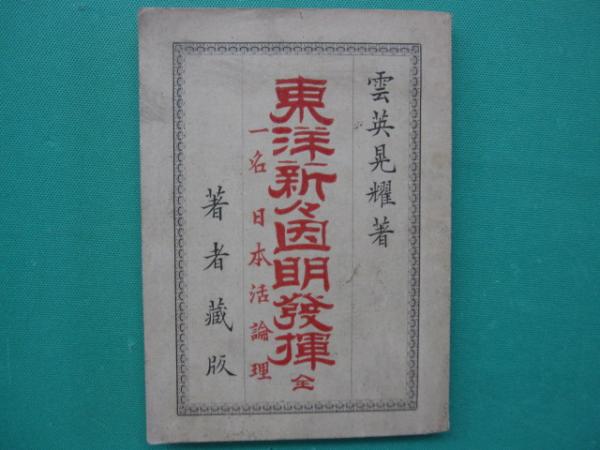 雲英晃耀著
東洋新々因明發揮 全
一名 日本活論理
著者藏版